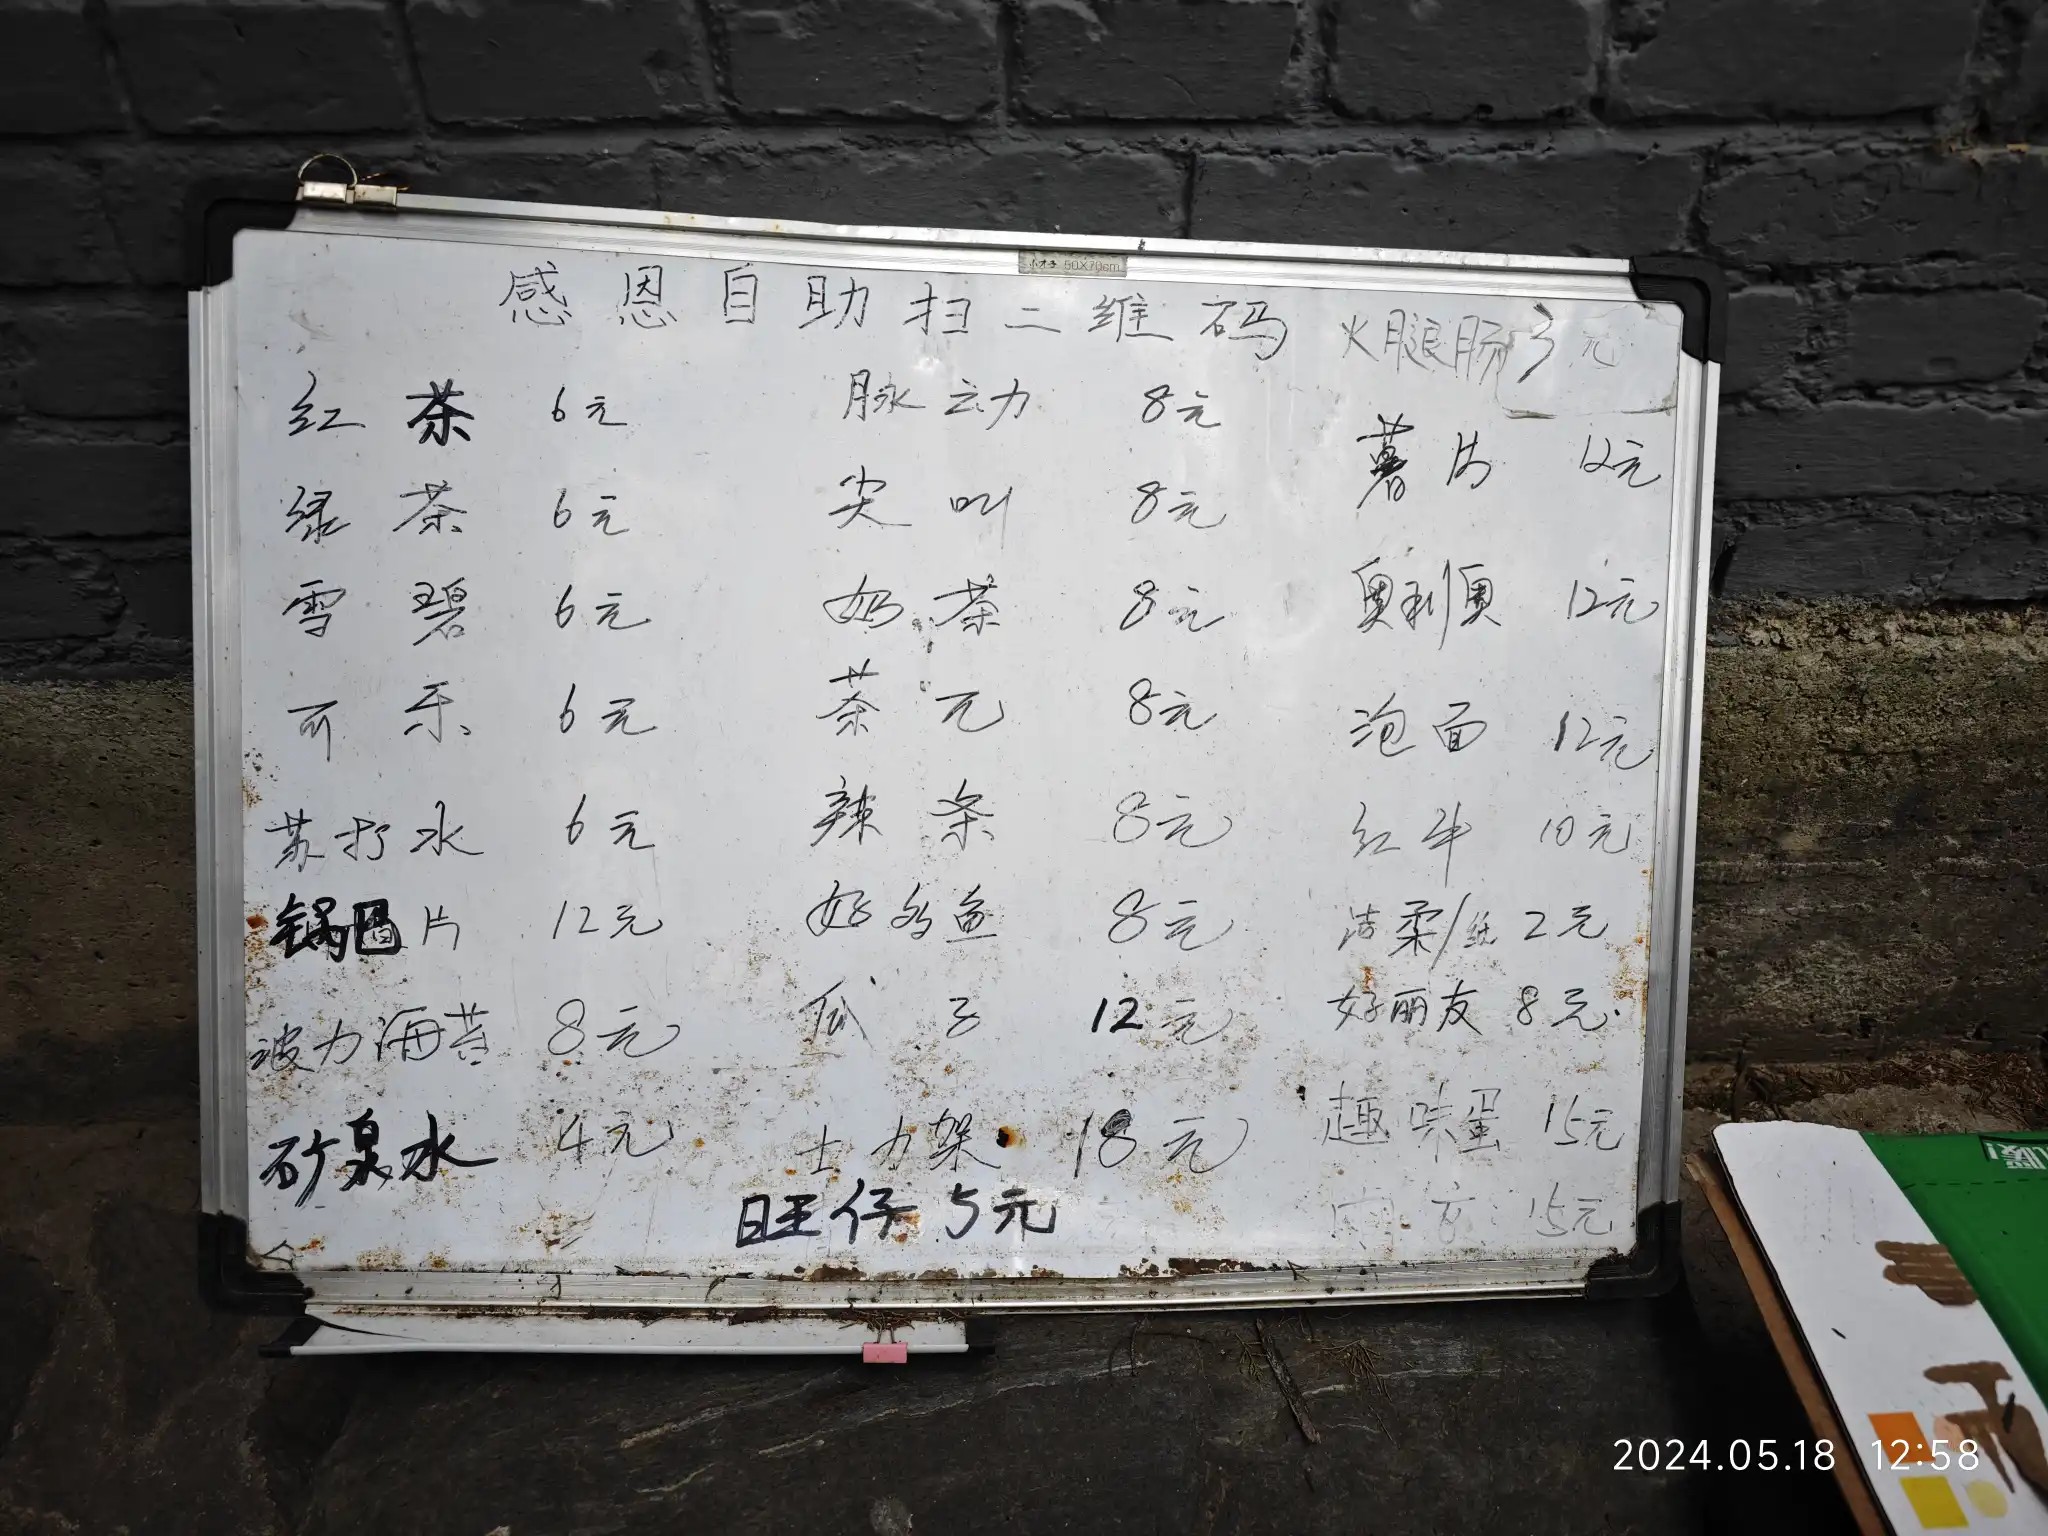 小才子 50X70cm
感恩自助扫二维码
火腿肠 3元
红茶 6元
绿茶 6元
雪碧 6元
可乐 6元
苏打水 6元
锅巴片 12元
波力海苔 8元
矿泉水 4元
脉动 8元
尖叫 8元
奶茶 8元
茶兀 8元
辣条 8元
好多鱼 8元
瓜子 12元
士力架 18元
旺仔 5元
薯片 12元
奥利奥 12元
泡面 12元
红牛 10元
洁柔/纸 2元
好丽友 8元
趣味蛋 15元
15元
2024.05.18 12:58